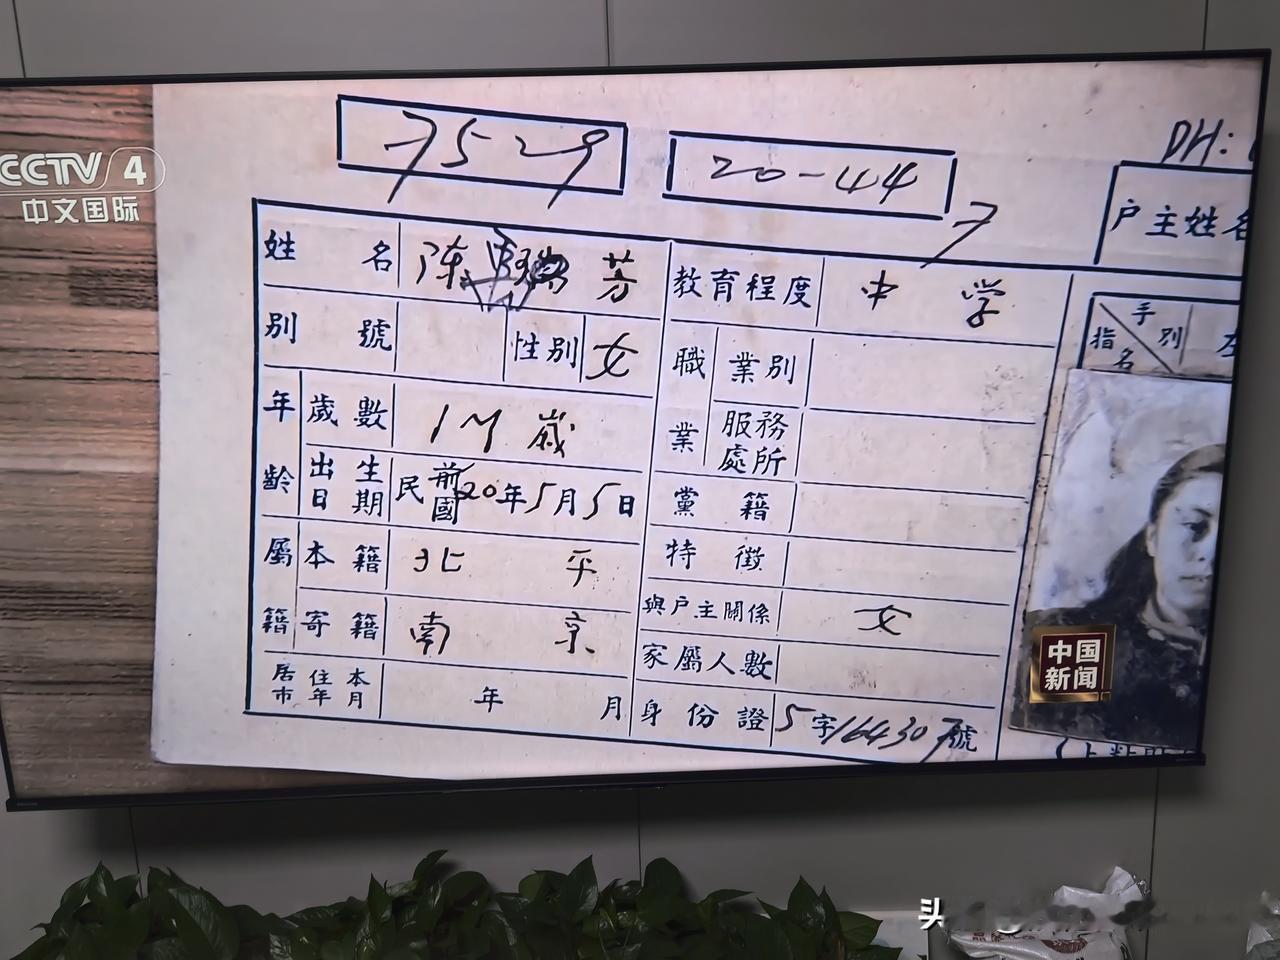 CCTV 4
中文国际
7529
20-44
7
DH:
户主姓名
姓名 陈 芳
教育程度 中学
别號
性别 女
職業 業别
服務處所
年齡 歲數 17歲
出生日期 民前國20年5月5日
黨籍
屬籍 本籍 北平
特徵
寄籍 南京
與户主關係 女
家屬人數
居住本市年月 年 月
身份證 5字164307號
手别
指名
左
中国新闻
头